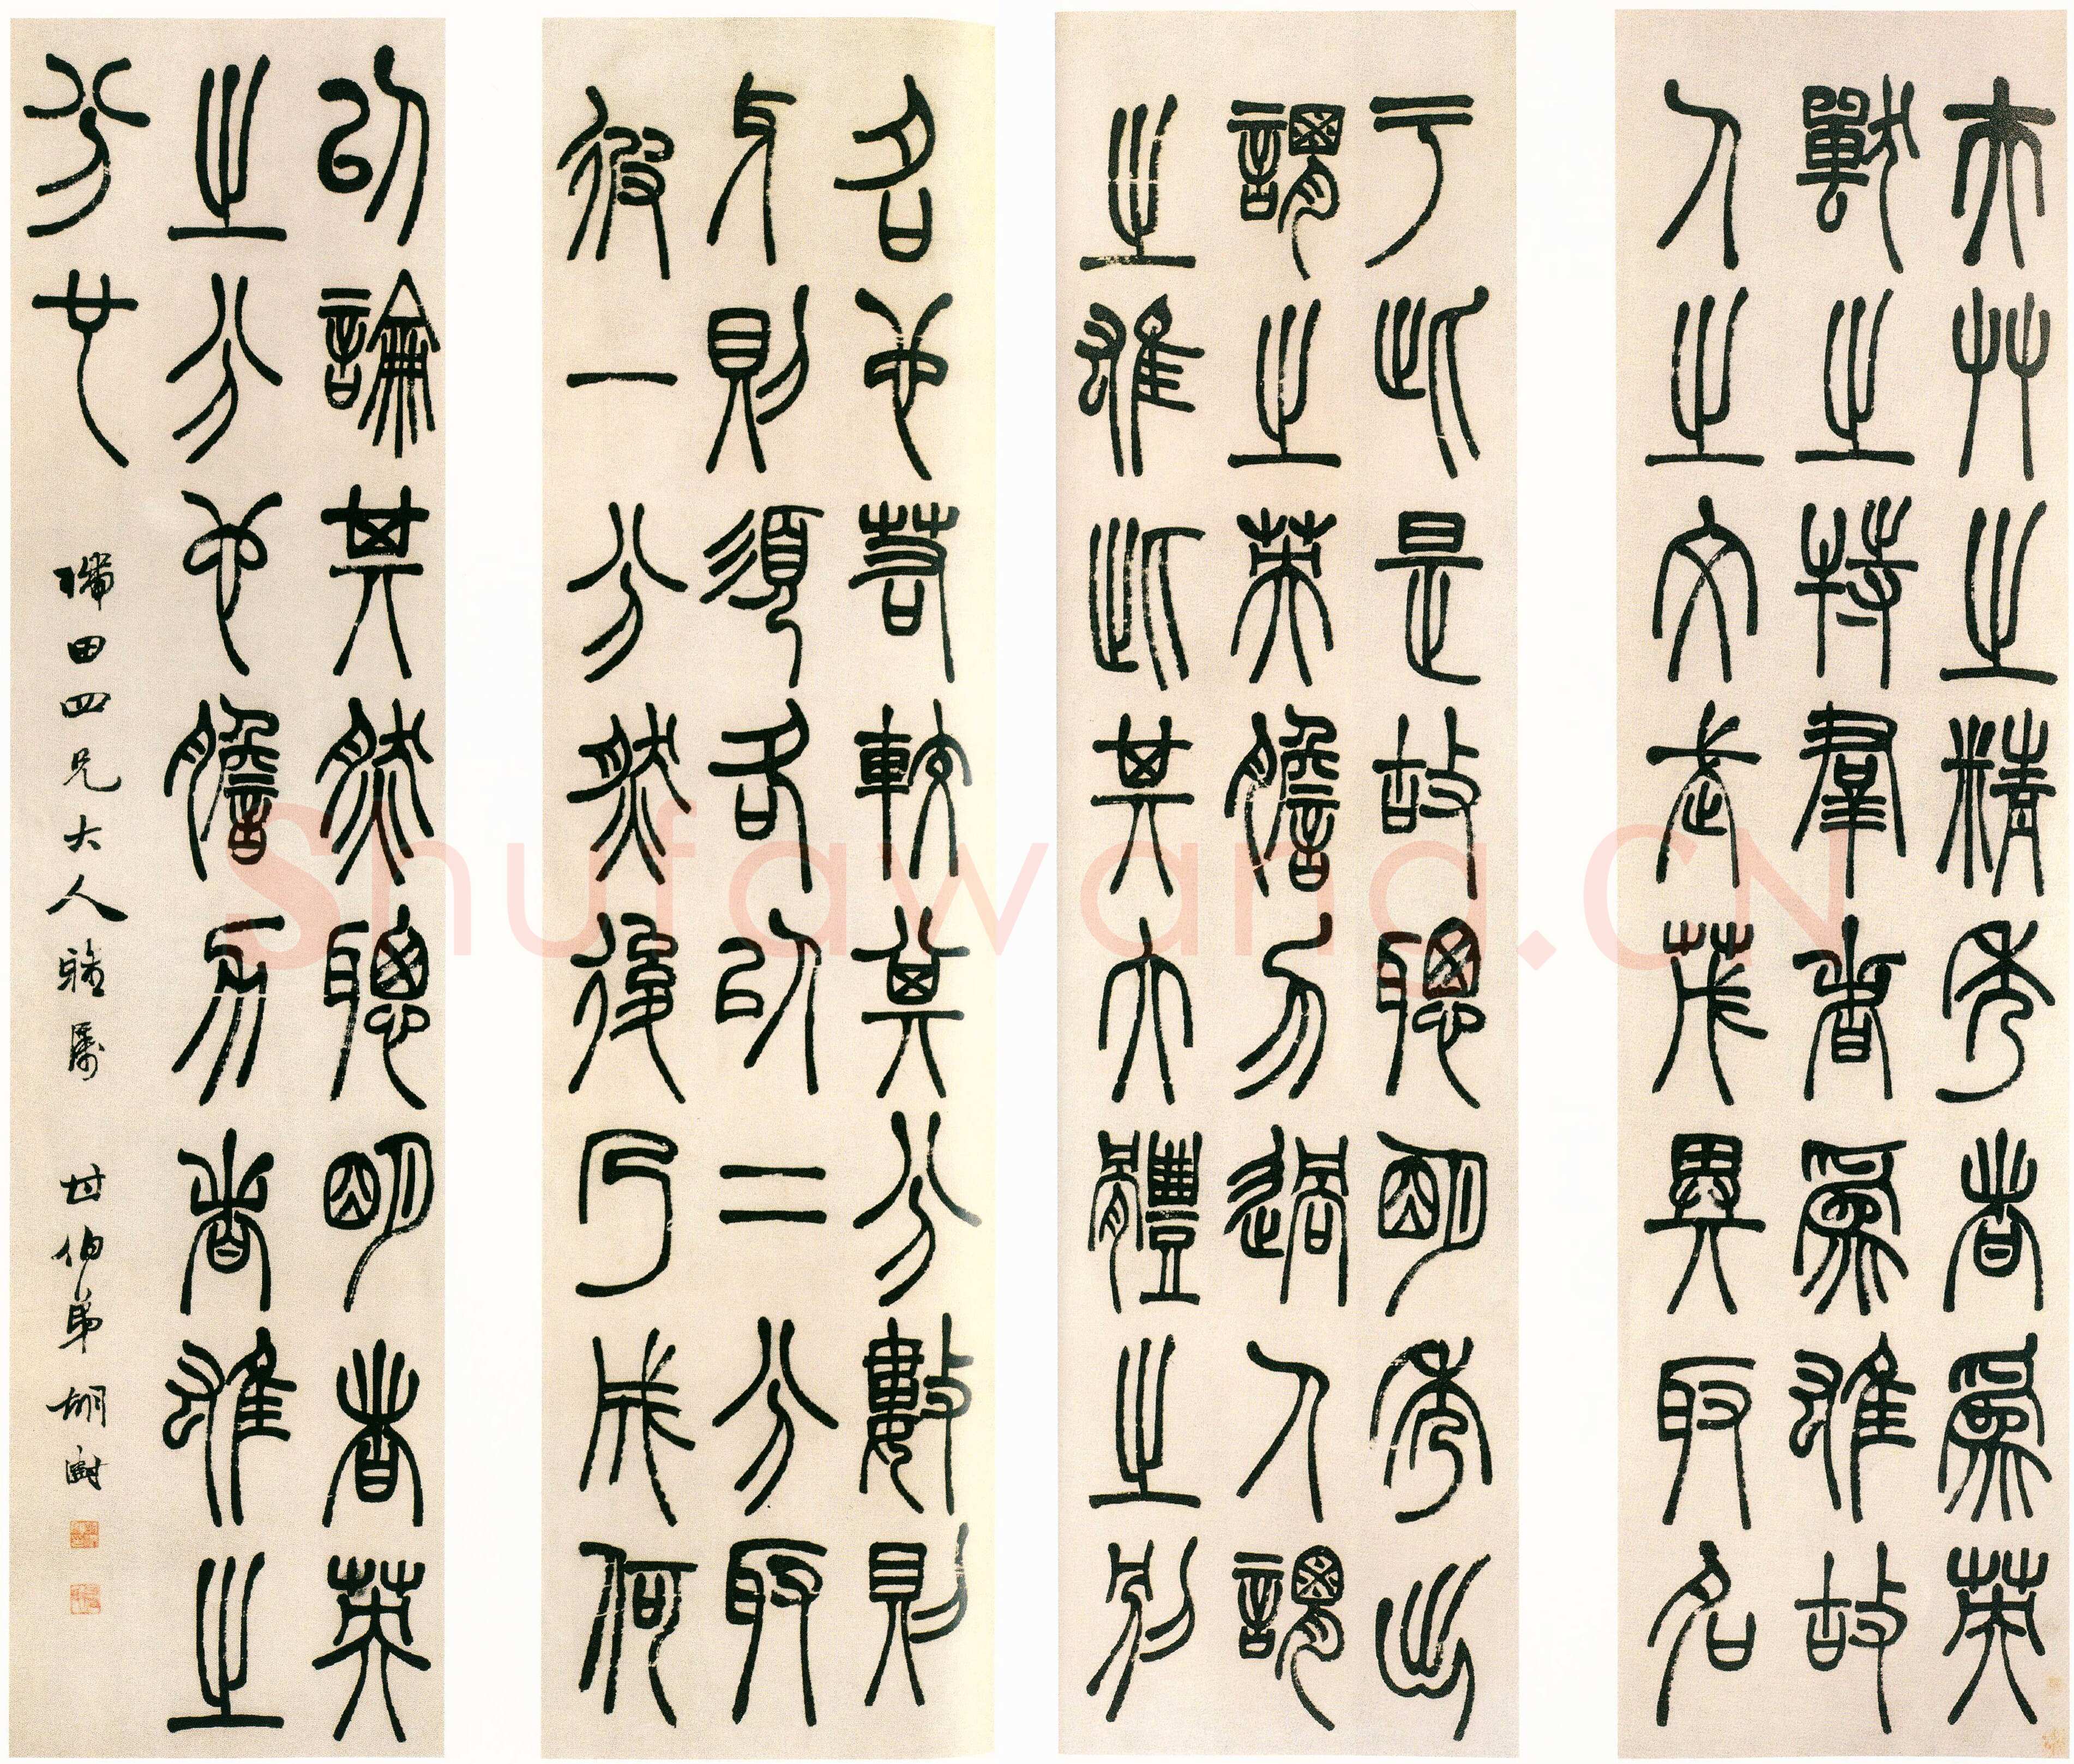 夫艸之精秀者為英
獸之特羣者為雄故
人之文武茂異取名
于此是故聰明秀出
謂之英膽力過人謂
之雄此其大體之別
名也若較其分數則
牙則須各以二分取
彼一分然後乃成何
以論其然聰明者英
之分也膽力者雄之
分也
璠田四兄大人雅屬 甘伯弟胡澍
Shufawang.CN